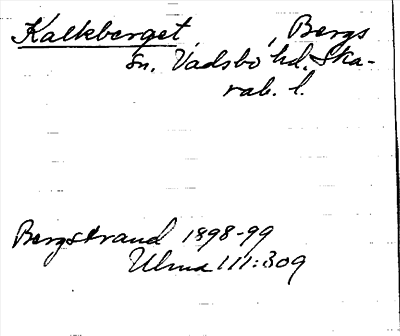 Kalkberget, , Bergs
sn, Vadsbo hd, Ska-
rab. l.
Bergstrand 1898-99
Ulma 111:309